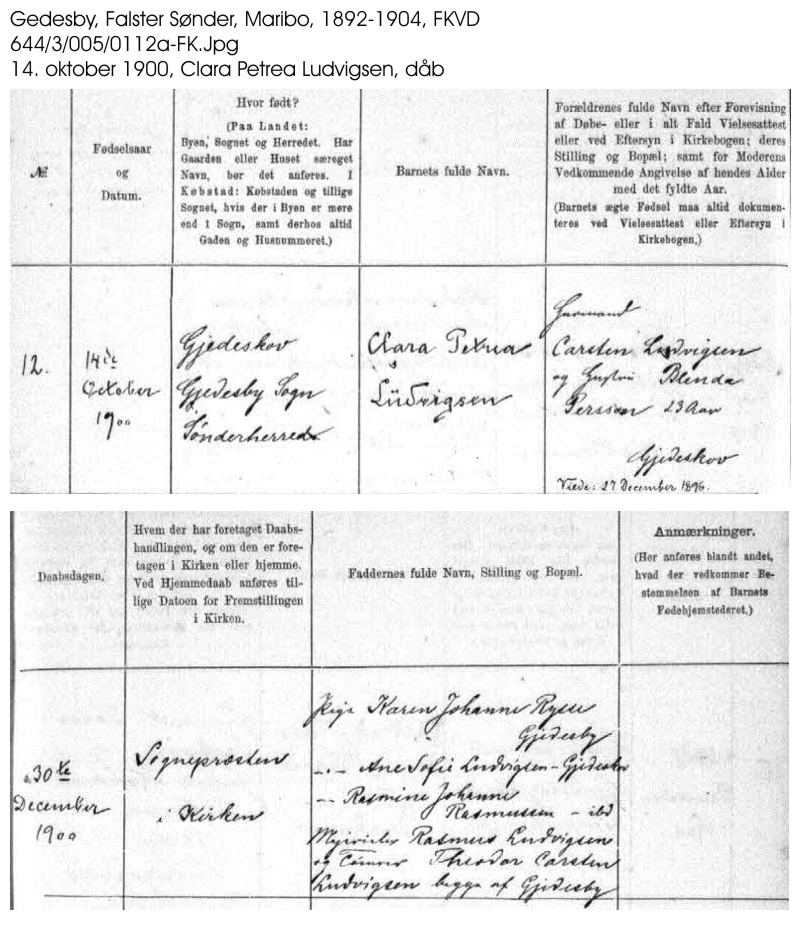 Gedesby, Falster Sønder, Maribo, 1892-1904, FKVD
644/3/005/0112a-FK.Jpg
14. oktober 1900, Clara Petrea Ludvigsen, dåb
№
Fødselsaar
og
Datum.
Hvor født?
(Paa Landet:
Byen, Sognet og Herredet. Har
Gaarden eller Huset særeget
Navn, bør det anføres. I
Købstad: Købstaden og tillige
Sognet, hvis der i Byen er mere
end 1 Sogn, samt derhos altid
Gaden og Husnummeret.)
Barnets fulde Navn.
Forældrenes fulde Navn efter Forevisning
af Døbe- eller i alt Fald Vielsesattest
eller ved Eftersyn i Kirkebogen; deres
Stilling og Bopæl; samt for Moderens
Vedkommende Angivelse af hendes Alder
med det fyldte Aar.
(Barnets ægte Fødsel maa altid dokumen-
teres ved Vielsesattest eller Eftersyn i
Kirkebogen.)
12.
14de
October
1900
Gjedeskov
Gjedesby Sogn
Sønderherred
Clara Petrea
Lüdvigsen
Huusmand
Carsten Ludvigsen
og Hustru Blenda
Persson 23 Aar
Gjedeskov
Viede: 27 December 1896.
Daabsdagen.
Hvem der har foretaget Daabs-
handlingen, og om den er fore-
tagen i Kirken eller hjemme.
Ved Hjemmedaab anføres til-
lige Datoen for Fremstillingen
i Kirken.
Faddernes fulde Navn, Stilling og Bopæl.
Anmærkninger.
(Her anføres blandt andet,
hvad der vedkommer Be-
stemmelsen af Barnets
Fødehjemstedsret.)
30te
December
1900
Sognepræsten
i Kirken
Pige Karen Johanne Rysse
Gjedesby
-"- Ane Sofie Ludvigsen - Gjedeskov
-"- Rasmine Johanne
Rasmussen - ibd
Rasmus Ludvigsen
og Tømrer Theodor Carsten
Ludvigsen begge af Gjedesby